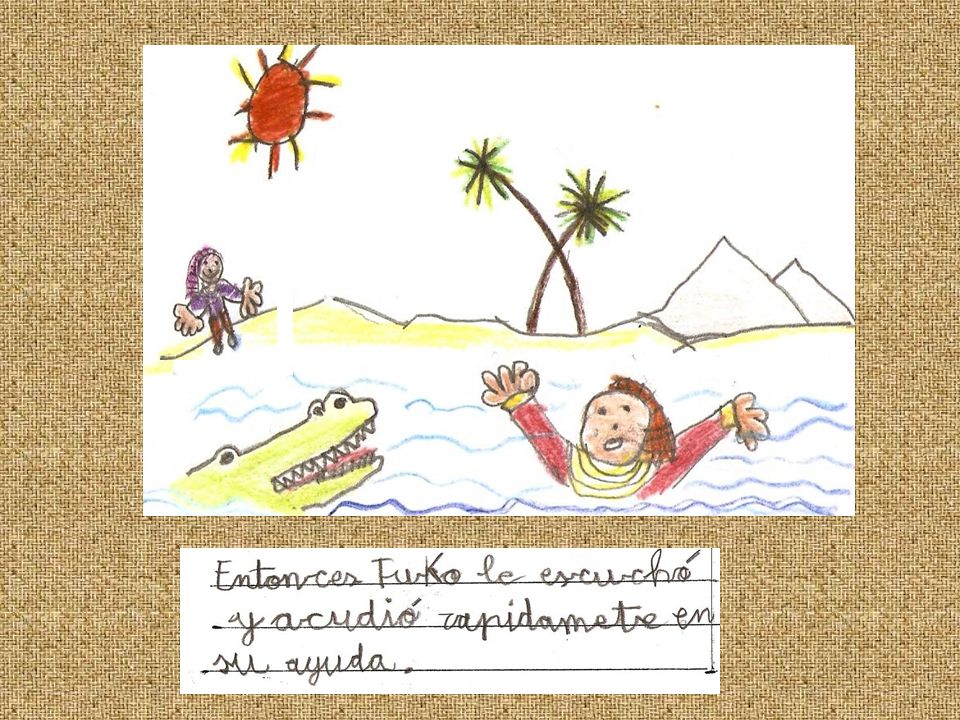 Entonces Fuko le escuchó
y acudió rapidamete en
su ayuda.